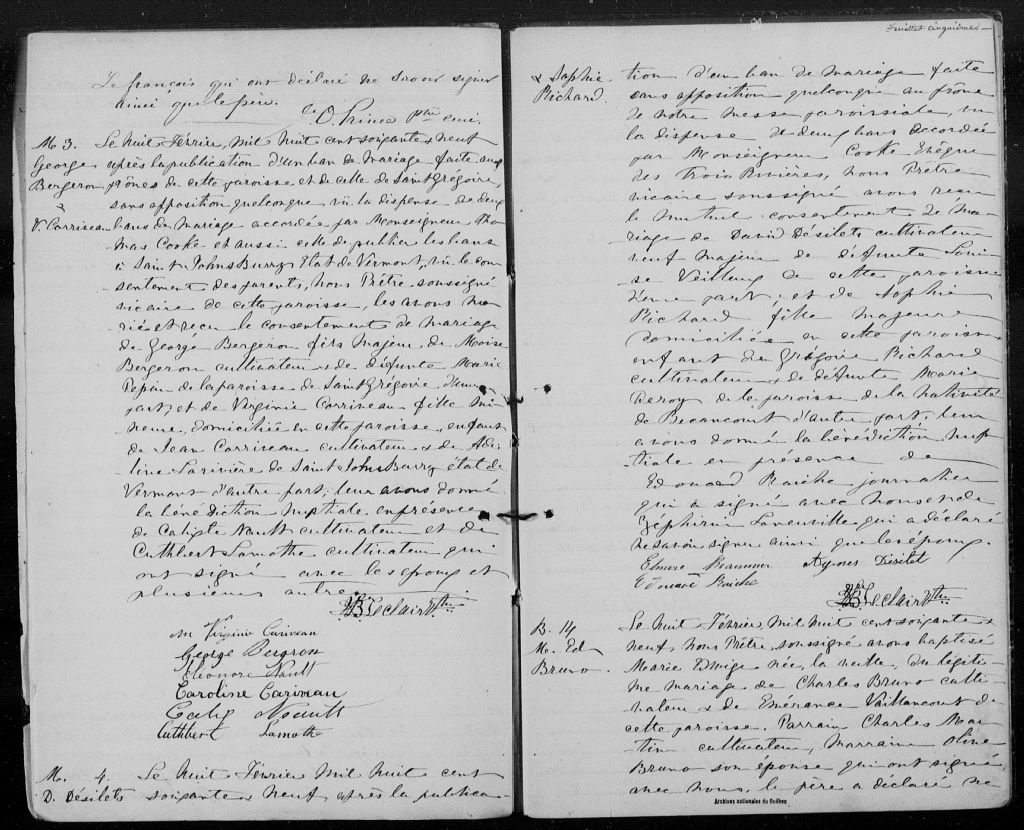 Lefrançois qui ont déclaré ne savoir signer
ainsi que le père.
J. O. Prince Ptre curé
M 3.
George
Bergeron
&
V. Corriveau
Le huit Février, mil huit cent soixante & neuf
après la publication d'un ban de mariage faite aux
prônes de cette paroisse et de celle de Saint Grégoire,
sans opposition quelconque, vû la dispense de deux
bans de mariage accordée par Monseigneur Tho-
mas Cooke et aussi celle de publier les bans
à Saint JohnsBurry État de Vermont, vû le con-
sentement des parents, Nous Prêtre soussigné
vicaire de cette paroisse, les avons ma-
rié et reçu le consentement de mariage
de George Bergeron fils majeur de Moïse
Bergeron cultivateur & de défunte Marie
Pepin de la paroisse de Saint Grégoire d'une
part, et de Virginie Corriveau fille mi-
neure, domiciliée en cette paroisse, enfant
de Jean Corriveau cultivateur & de Ade-
line Larivière de Saint JohnsBurry état de
Vermont d'autre part, leur avons donné
la bénédiction nuptiale en présence
de Calixte Nault cultivateur et de
Cuthbert Lamothe cultivateur qui
ont signé avec les époux et
plusieurs autres.
JB Leclair Ptre
M Virginie Cariveau
George Bergron
Eleonore Nault
Caroline Cariveau
Calix Neault
Cuthbert Lamothe
M. 4.
D. Désilets
Le huit Février mil huit cent
soixante & neuf, après la publica-
Feuillet cinquième
& Sophie
Richard
tion d'un ban de mariage faite
sans opposition quelconque au prône
de notre messe paroissiale, vu
la dispense de deux bans accordée
par Monseigneur Cooke Évêque
des Trois Rivières, Nous Prêtre
vicaire soussigné avons reçu
le mutuel consentement de ma-
riage de David Désilets cultivateur
veuf majeur de défunte Loui-
se Veilleux de cette paroisse
d'une part; et de Sophie
Richard fille majeure
domiciliée en cette paroisse
enfant de Grégoire Richard
cultivateur & de défunte Marie
Deroy de la paroisse de la Nativité
de Becancourt d'autre part, leur
avons donné la bénédiction nup-
tiale en présence de
Edouard Raiche journalier
qui a signé avec nous et de
Zéphirin Laneuville qui a déclaré
ne savoir signer ainsi que les époux.
Agnes Désilet
Edouard Raiche
JB Leclair Ptre
B. 14
M. Ed
Bruno
Le huit Février, mil huit cent soixante &
neuf, Nous Prêtre, soussigné avons baptisé
Marie Edwige née, la veille, du légiti-
me mariage de Charles Bruno culti-
vateur & de Emérance Vaillancourt de
cette paroisse. Parrain Charles Mar-
tin cultivateur, Marraine Olive
Bruno son épouse qui ont signé
avec nous, le père a déclaré ne
Archives nationales du Québec